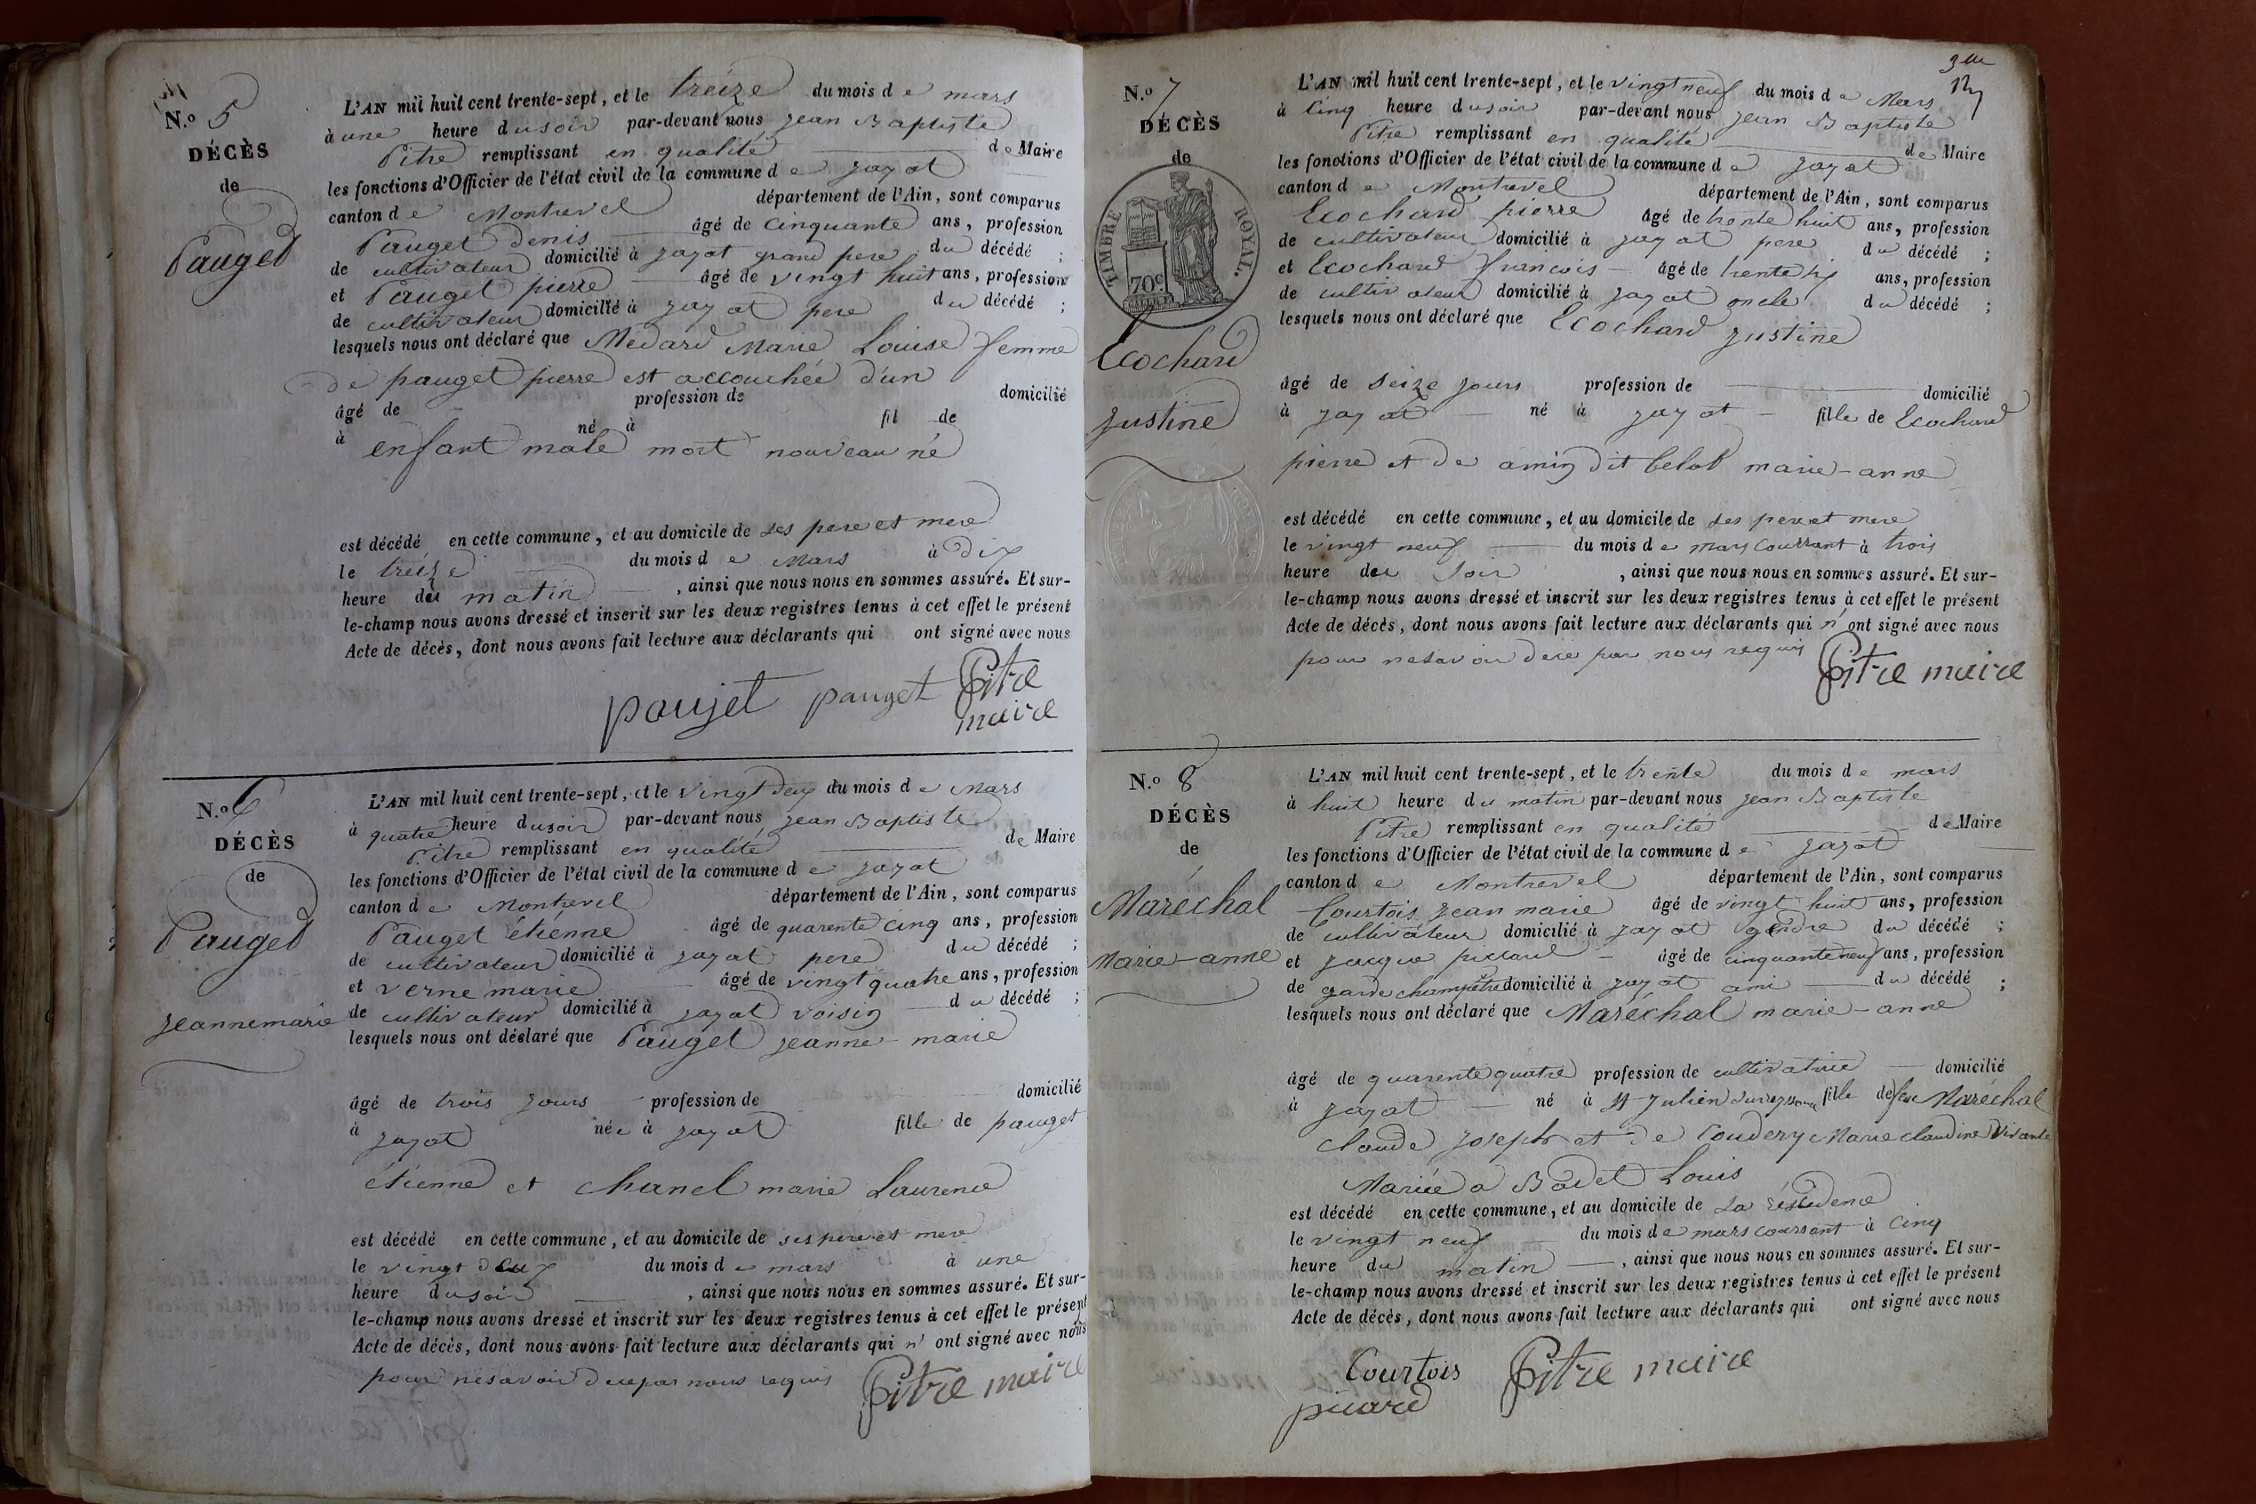 N.º 5
DÉCÈS
de
Pauget
L'AN mil huit cent trente-sept, et le treize du mois de mars
à une heure du soir par-devant nous jean Baptiste
Pitre remplissant en qualité de Maire
les fonctions d'Officier de l'état civil de la commune de jayat
canton de Montrevel département de l'Ain, sont comparus
Pauget Denis âgé de cinquante ans, profession
de cultivateur domicilié à jayat grand pere du décédé ;
et Pauget pierre âgé de vingt huit ans, profession
de cultivateur domicilié à jayat pere du décédé ;
lesquels nous ont déclaré que Médard Marie Louise femme
de pauget pierre est accouchée d'un
âgé de profession de domicilié
à né à fil de
enfant male mort nouveau né
est décédé en cette commune, et au domicile de ses pere et mere
le treize du mois de Mars à dix
heure du matin, ainsi que nous nous en sommes assuré. Et sur-
le-champ nous avons dressé et inscrit sur les deux registres tenus à cet effet le présent
Acte de décès, dont nous avons fait lecture aux déclarants qui ont signé avec nous
poujet pauget Pitre
maire
N.º 6
DÉCÈS
de
Pauget
jeanne marie
L'AN mil huit cent trente-sept, et le vingt deux du mois de Mars
à quatre heure du soir par-devant nous jean Baptiste
Pitre remplissant en qualité de Maire
les fonctions d'Officier de l'état civil de la commune de jayat
canton de Montrevel département de l'Ain, sont comparus
Pauget étienne âgé de quarente cinq ans, profession
de cultivateur domicilié à jayat pere du décédé ;
et verne marie âgé de vingt quatre ans, profession
de cultivateur domicilié à jayat voisin du décédé ;
lesquels nous ont déclaré que Pauget jeanne-marie
âgé de trois jours profession de domicilié
à jayat née à jayat fille de pauget
étienne et chanel marie Laurence
est décédé en cette commune, et au domicile de ses pere et mere
le vingt deux du mois de mars à une
heure du soir, ainsi que nous nous en sommes assuré. Et sur-
le-champ nous avons dressé et inscrit sur les deux registres tenus à cet effet le présent
Acte de décès, dont nous avons fait lecture aux déclarants qui n'ont signé avec nous
pour ne savoir de ce par nous requis Pitre maire
N.º 7
DÉCÈS
de
TIMBRE ROYAL.
70c
Ecochard
justine
L'AN mil huit cent trente-sept, et le vingt neuf du mois de Mars
à cinq heure du soir par-devant nous jean Baptiste
Pitre remplissant en qualité de Maire
les fonctions d'Officier de l'état civil de la commune de jayat
canton de Montrevel département de l'Ain, sont comparus
Ecochard pierre âgé de trente huit ans, profession
de cultivateur domicilié à jayat pere du décédé ;
et Ecochard francois âgé de trente six ans, profession
de cultivateur domicilié à jayat oncle du décédé ;
lesquels nous ont déclaré que Ecochard justine
âgé de seize jours profession de domicilié
à jayat né à jayat fille de Ecochard
pierre et de amin dit belot marie-anne
est décédé en cette commune, et au domicile de ses pere et mere
le vingt neuf du mois de mars courrant à trois
heure du soir, ainsi que nous nous en sommes assuré. Et sur-
le-champ nous avons dressé et inscrit sur les deux registres tenus à cet effet le présent
Acte de décès, dont nous avons fait lecture aux déclarants qui n'ont signé avec nous
pour ne savoir de ce par nous requis Pitre maire
N.º 8
DÉCÈS
de
Maréchal
Marie-anne
L'AN mil huit cent trente-sept, et le trente du mois de mars
à huit heure du matin par-devant nous jean Baptiste
Pitre remplissant en qualité de Maire
les fonctions d'Officier de l'état civil de la commune de jayat
canton de Montrevel département de l'Ain, sont comparus
Courtois jean marie âgé de vingt huit ans, profession
de cultivateur domicilié à jayat gendre du décédé ;
et jacque piccard âgé de cinquante neuf ans, profession
de garde champêtre domicilié à jayat ami du décédé ;
lesquels nous ont déclaré que Maréchal marie-anne
âgé de quarente quatre profession de cultivatrice domicilié
à jayat né à St julien sur reyssouze fille de feu Maréchal
claude joseph et de Coudery Marie claudine Vivante
Mariée a Badet Louis
est décédé en cette commune, et au domicile de sa résidence
le vingt neuf du mois de mars courrant à cinq
heure du matin, ainsi que nous nous en sommes assuré. Et sur-
le-champ nous avons dressé et inscrit sur les deux registres tenus à cet effet le présent
Acte de décès, dont nous avons fait lecture aux déclarants qui ont signé avec nous
Courtois Pitre maire
picard